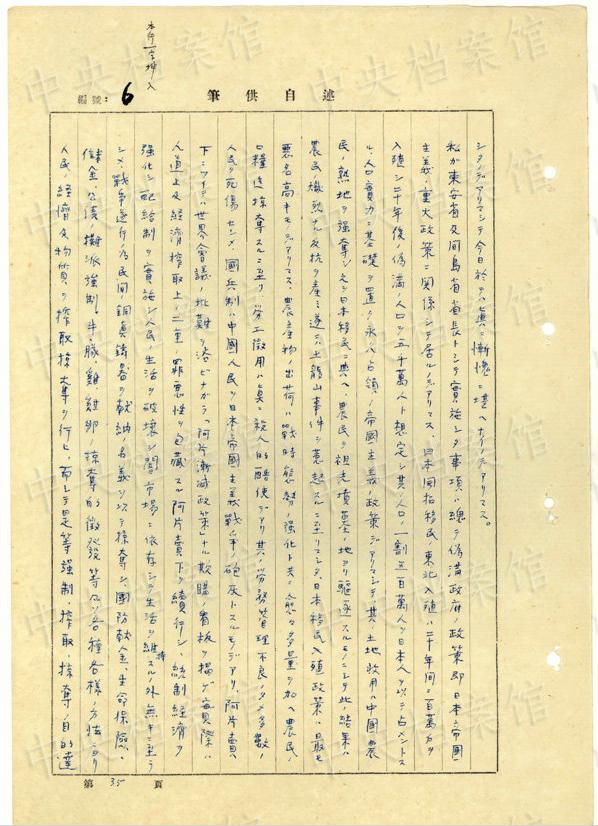 本行一字挿入
編號: 6
筆供自述
シタノデアリマシテ今日於テハ真ニ慚愧ニ堪ヘナイノデアリマス。
私ガ東安省及間島省省長トシテ實施シタ事項ハ總テ偽満政府ノ政策即日本帝國
主義ノ重大政策ニ関係シテ居ルノデアリマス。日本開拓移民東北入殖ハ二十年間ニ百萬戸ヲ
入殖シ二十年後ノ偽満ノ人口ヲ五千萬人ト想定シ其ノ人口ノ一割五百萬人ヲ日本人ヲ以テ占メントス
ル人口實力ニ基礎ヲ置ク永久占領ノ帝國主義政策デアリマシテ其ノ土地收用ハ中國農
民ノ熟地ヲ強奪シ之ヲ日本移民ニ與ヘ農民ヲ祖先墳墓ノ地ヨリ駆逐スルモノニシテ此ノ結果ハ
農民ノ熾烈ナル反抗ヲ産ミ遂ニハ土龍山事件ヲ惹起スルニ至リマシタ、日本移民入殖政策ハ最モ
悪名高キモノデアリマス。農産物ノ出荷ハ戰時態勢ノ強化ト共ニ益々多量ヲ加ヘ農民ノ
口糧迄掠奪スルニ至リ労工徴用ハ真ニ殺人的酷使デアリ其ノ労務管理不良ノタメ多數ノ
人民ヲ死傷セシメ、國兵制ハ中國人民ヲ日本帝國主義戰争ノ砲灰トスルモノデアリ、阿片賣
下ニツイテハ世界會議ノ批難ヲ浴ビナガラ「阿片漸減政策」ナル欺瞞ノ看板ヲ掲ゲ實際ハ
人道上及經濟搾取上ノ二重ノ罪悪性ヲ包藏スル阿片賣下ヲ續行シ、統制經濟ヲ
強化シ配給制ヲ實施シ人民ノ生活ヲ破壊シ闇市場ニ依存シテ生活ヲ維持スルノ外無キニ至ラ
シメ、戰争遂行ノ為民間ノ銅真鍮器ヲ獻納ノ名義ノ以テ掠奪シ、國防献金、生命保險、
儲金、公債ノ攤派強制、牛、豚、雞、雞卵ノ掠奪的徴發等凡ソ各種各様ノ方法ニヨリ
人民ノ經濟及物資ヲ搾取掠奪ヲ行ヒ、而シテ是等強制搾取、掠奪ノ目的達
第 35 頁
中央档案馆